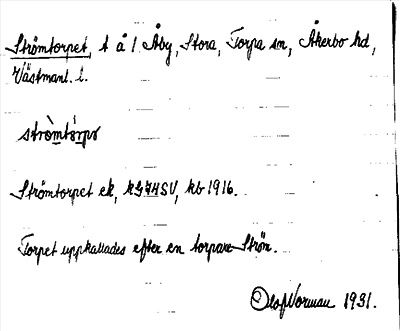 Strömtorpet, t å 1 Åby, Stora, Torpa sn, Åkerbo hd,
Västmanl. l.
strömtórps
Strömtorpet ek, kb 1916.
Torpet uppkallades efter en torpare Ström.
Olof Norman 1931.